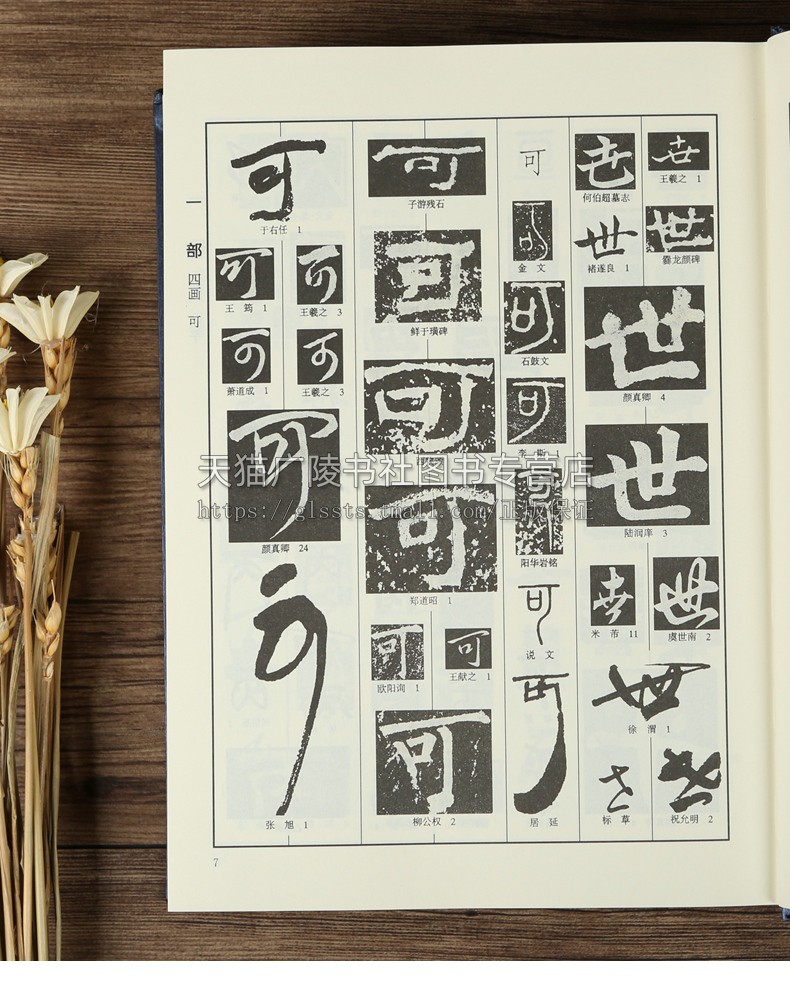 世
王羲之 1
世
爨龙颜碑
世
何伯超墓志
世
褚遂良 1
世
颜真卿 4
世
陆润庠 3
世
虞世南 2
世
米芾 11
世
徐渭 1
世
祝允明 2
世
标草
可
可
金文
可
石鼓文
可
李斯 1
可
阳华岩铭
可
说文
可
居延
可
子游残石
可
鲜于璜碑
可
可
郑道昭 1
可
王献之 1
可
欧阳询 1
可
柳公权 2
可
于右任 1
可
王羲之 3
可
王筠 1
可
王羲之 3
可
萧道成 1
可
颜真卿 24
可
张旭 1
一部 四画 可
7
天猫广陵书社图书专营店
https://glssts.tmall.com/正版保证